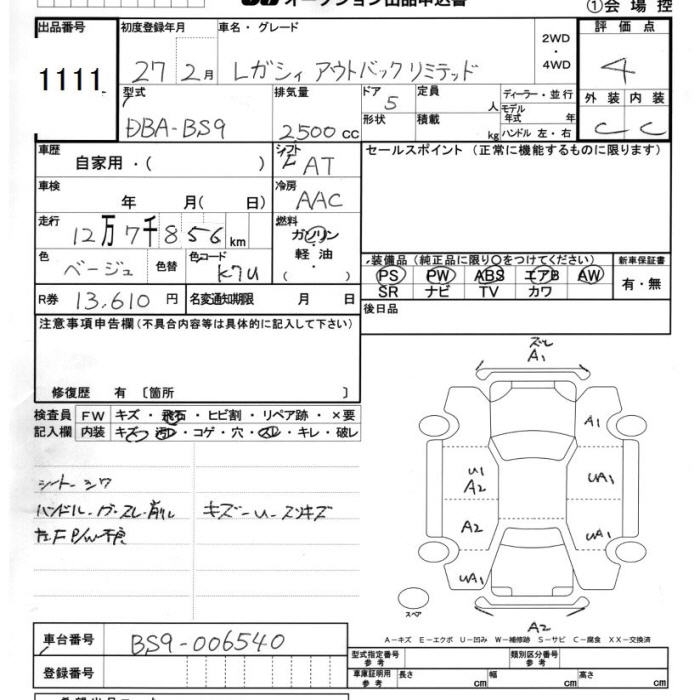 オークション出品申込書 ①会場控
出品番号 初度登録年月 車名・グレード 2WD・4WD 評価点
1111 27 2月 レガシィ アウトバック リミテッド 4
型式 排気量 ドア 定員 ディーラー・並行 外装 内装
DBA-BS9 2500cc 5 人 モデル年式 年 C C
形状 積載 kg ハンドル 左・右
車歴 シフト セールスポイント(正常に機能するものに限ります)
自家用・( ) AT
車検 冷房
年 月( 日) AAC
走行 燃料
12万7千856km ガソリン・軽油・( )
色 色替 色コード 装備品(純正品に限り○をつけてください) 新車保証書
ベージュ K7U PS PW ABS エアB AW 有・無
SR ナビ TV カワ
R券 13,610円 名変通知期限 月 日 後日品
注意事項申告欄(不具合内容等は具体的に記入して下さい)
修復歴 有〔箇所 〕
検査員 FW キズ・飛石・ヒビ割・リペア跡・×要
記入欄 内装 キズ・汚れ・コゲ・穴・スレ・キレ・破レ
シートシワ
ハンドル スレ 削れ キズ-U-スリキズ
左F P/W不良
ズレ
A1
A1
U1
A2
UA1
A2
UA1
UA1
スペア
A2
A-キズ E-エクボ U-凹み W-補修跡 S-サビ C-腐食 XX-交換済
車台番号 BS9-006540
登録番号
型式指定番号 参考 類別区分番号 参考
車庫証明用 参考 長さ cm 幅 cm 高さ cm